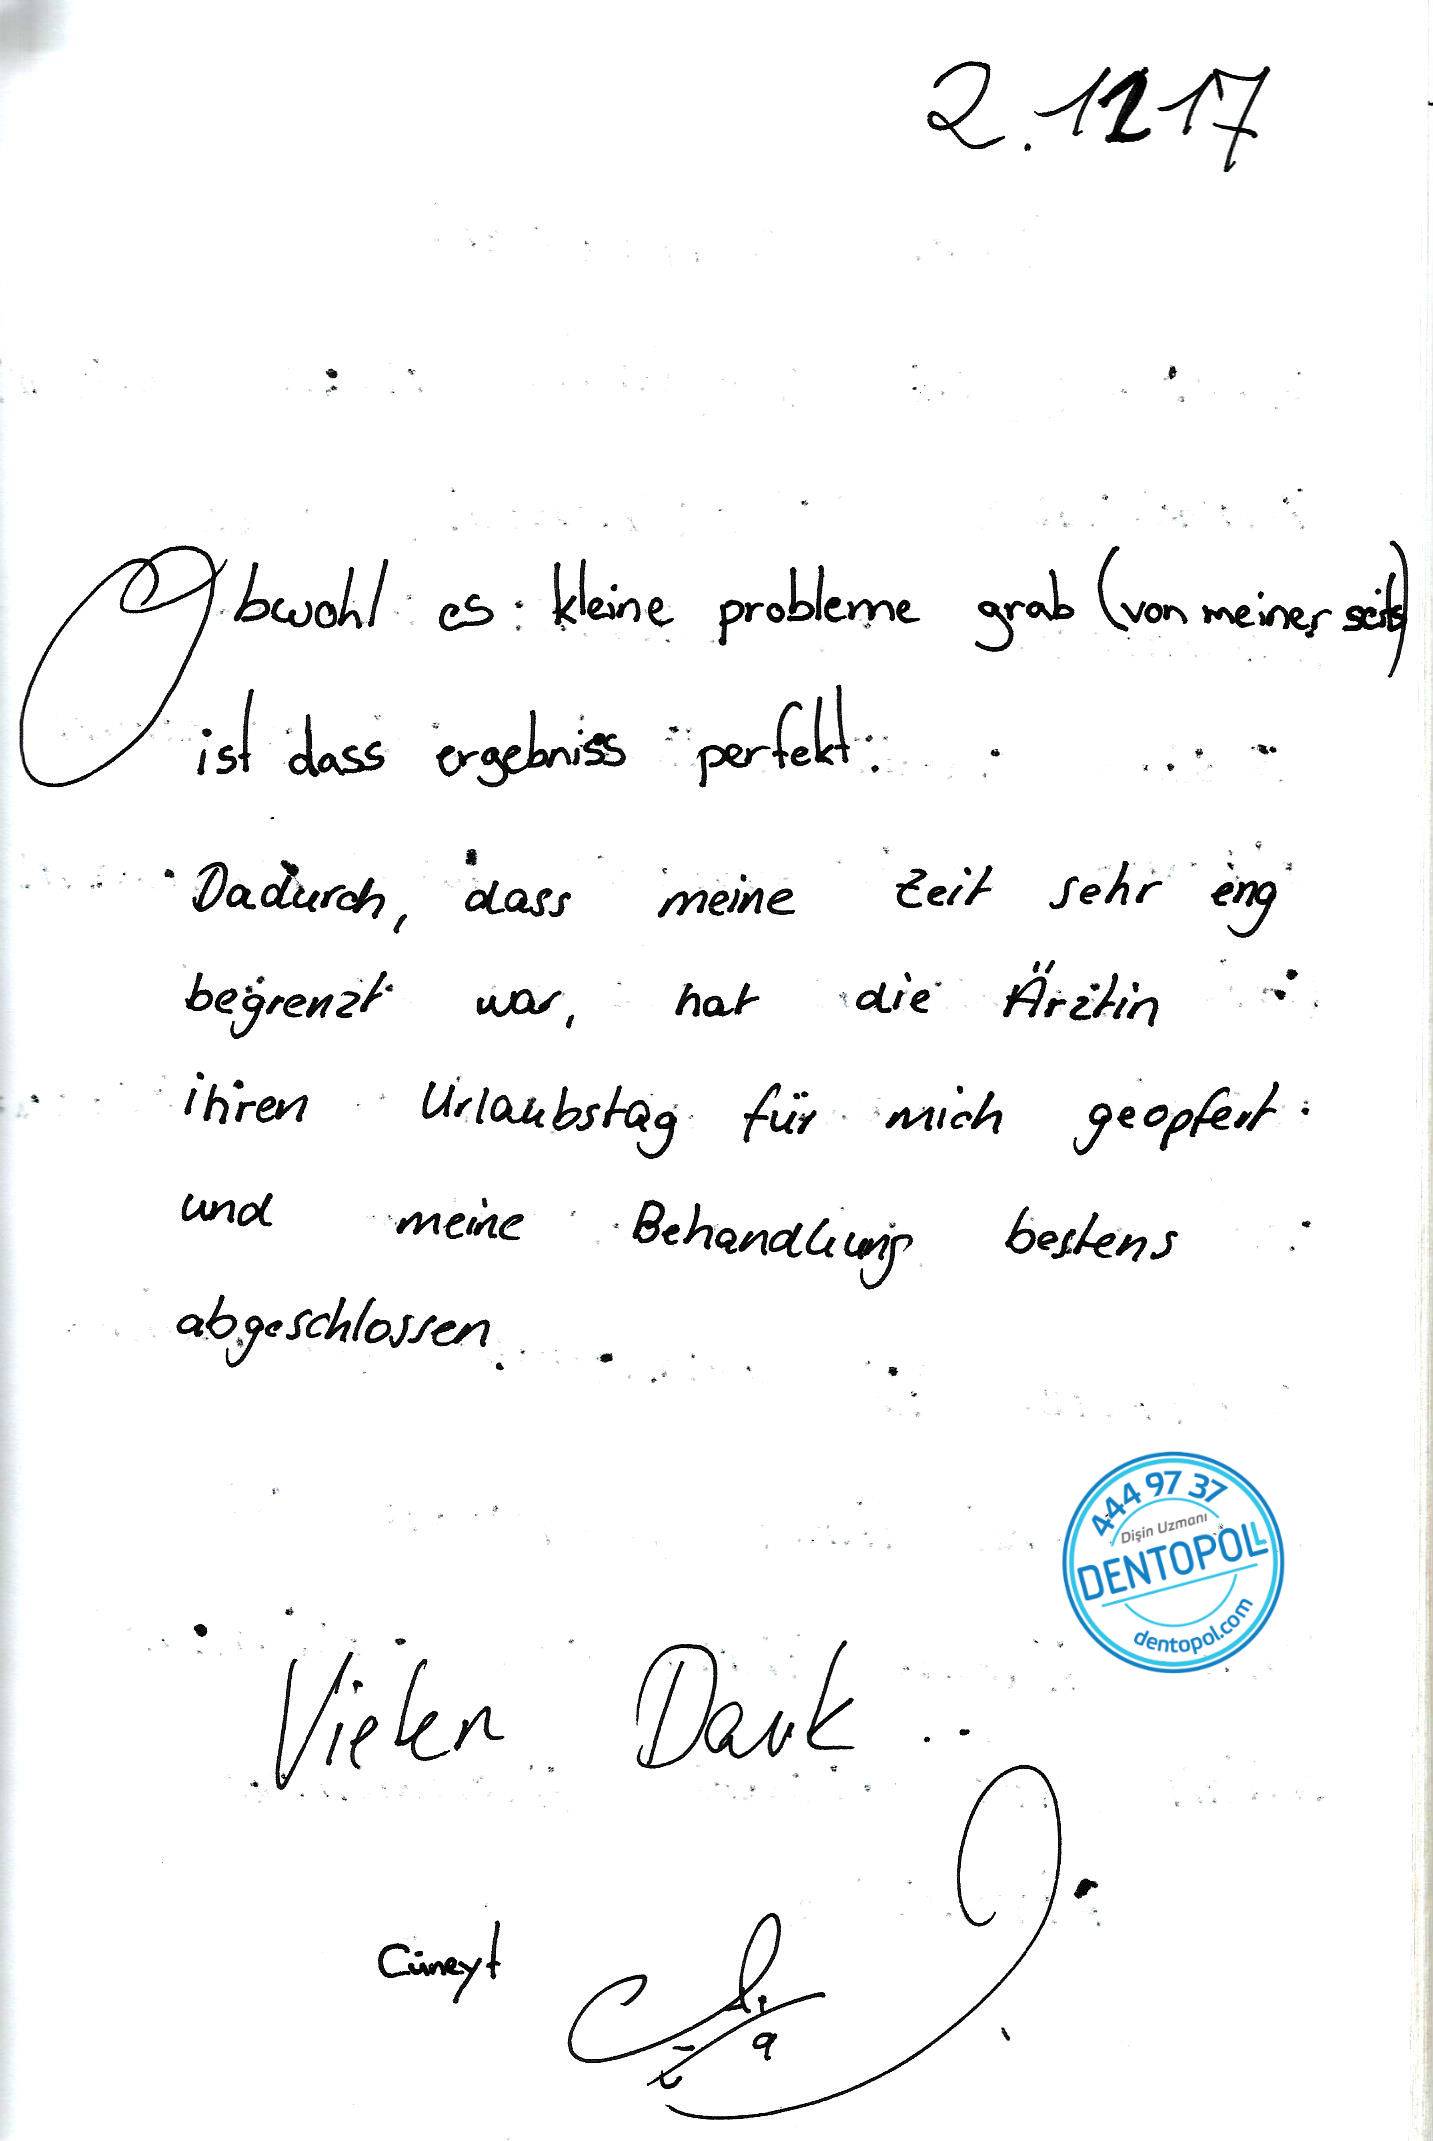 2.1217
Obwohl es kleine probleme grab (von meiner seits)
ist dass ergebniss perfekt.
Dadurch, dass meine Zeit sehr eng
begrenzt war, hat die Ärztin
ihren Urlaubstag für mich geopfert
und meine Behandlung bestens
abgeschlossen.
444 97 37
Dişin Uzmanı
DENTOPOL
dentopol.com
Vielen Dank ..
Cüneyt